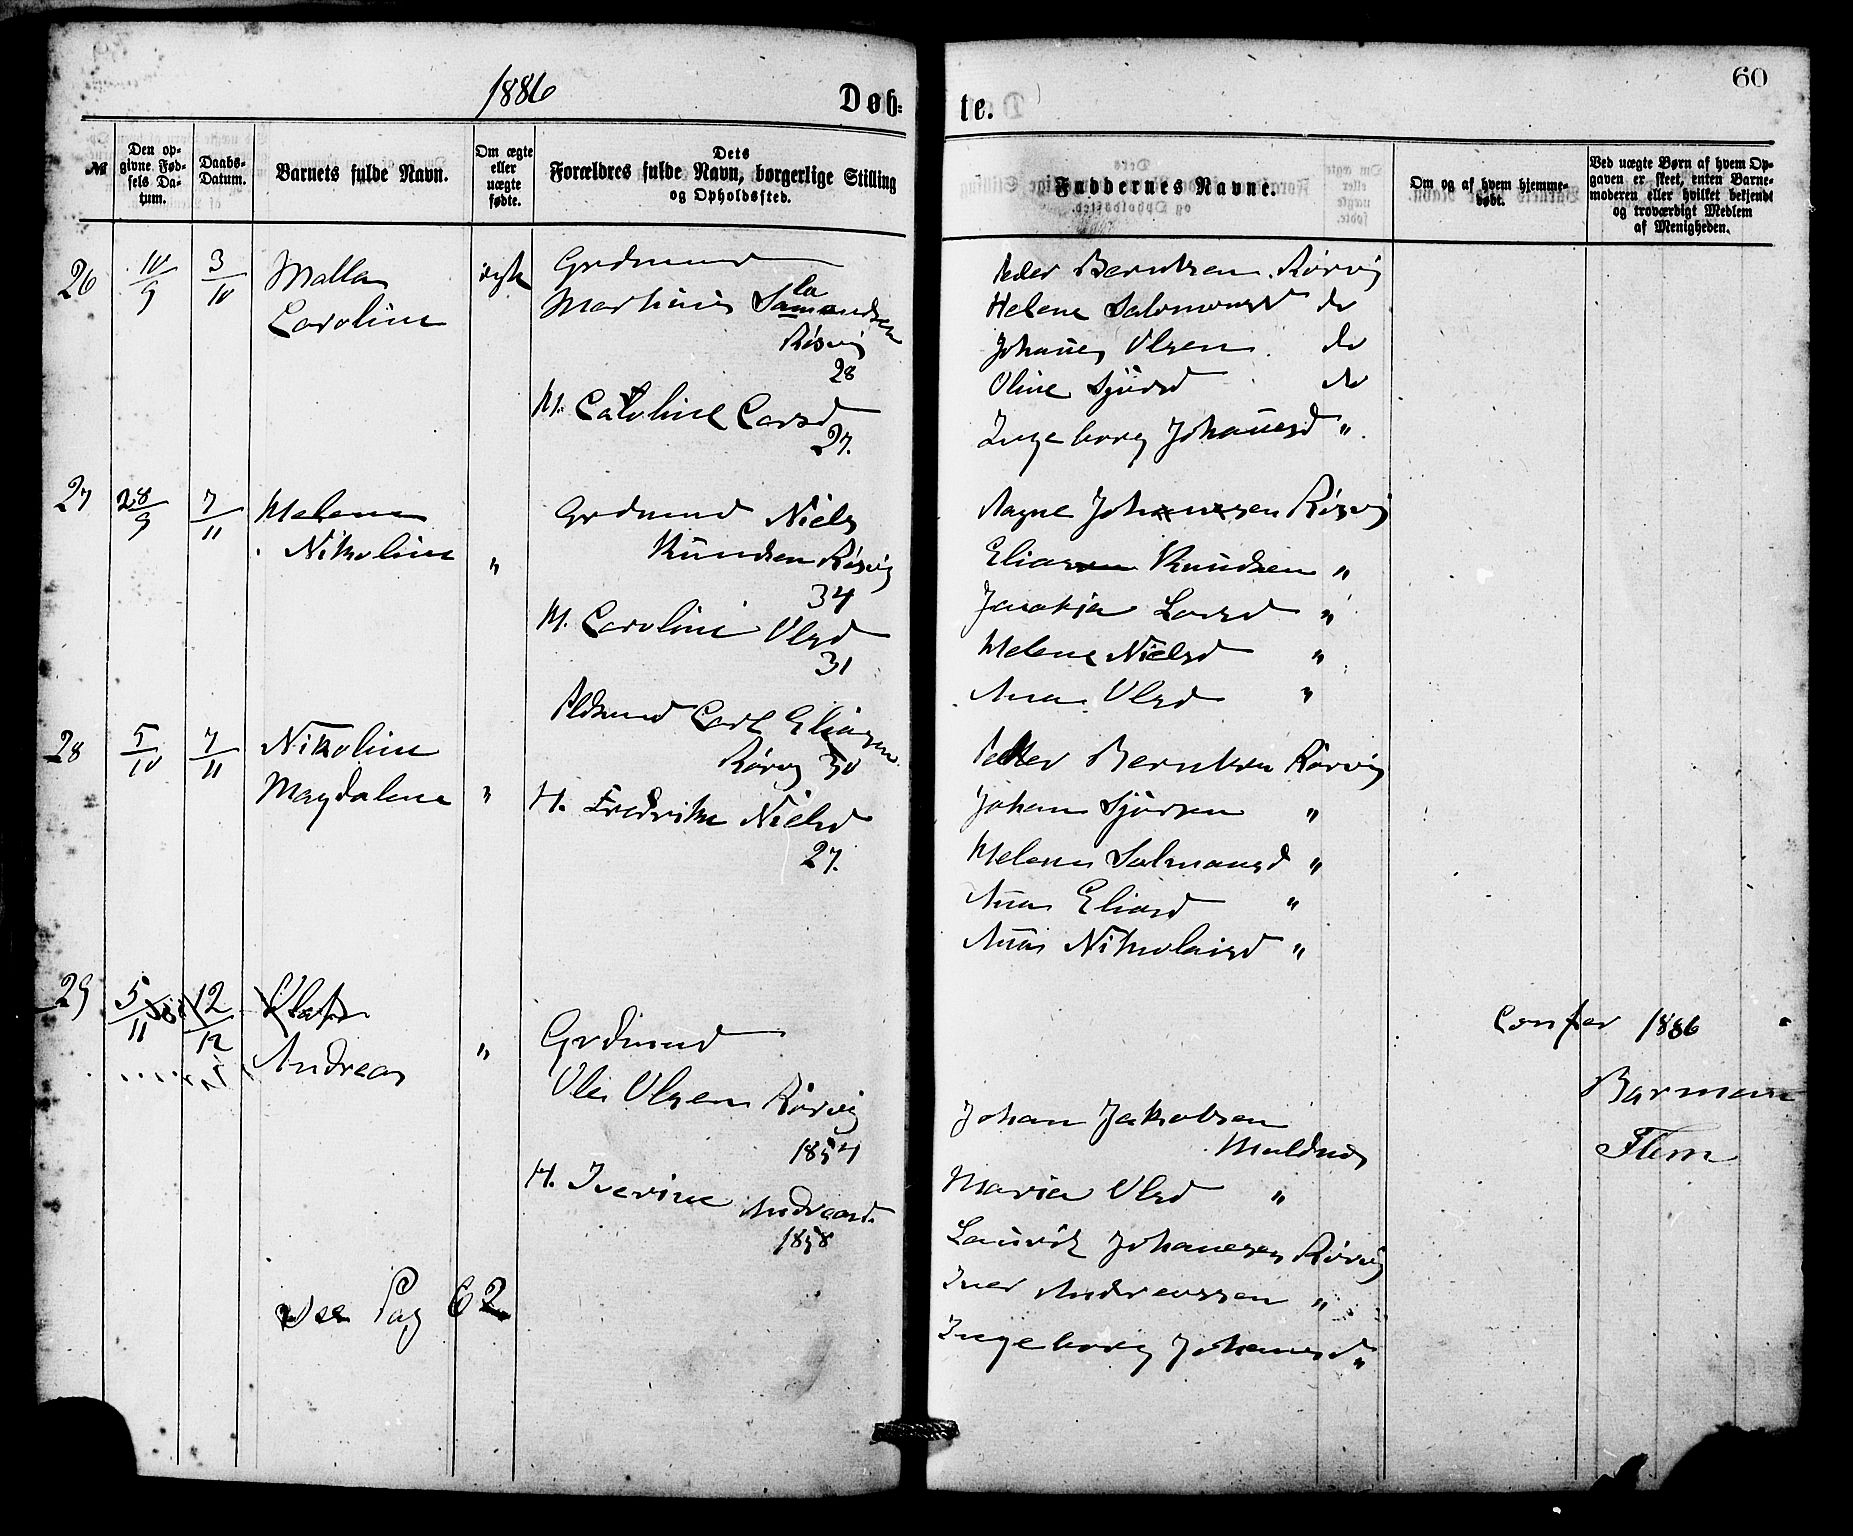 1886
Døb-
te.
60
№
Den op-
givne Fød-
sels Da-
tum.
Daabs-
Datum.
Barnets fulde Navn.
Om ægte
eller
uægte
fødte.
Dets
Forældres fulde Navn, borgerlige Stilling
og Opholdssted.
Faddernes Navne.
Om og af hvem hjemme-
døbt.
Ved uægte Børn af hvem Op-
gaven er skeet, enten Barne-
moderen eller hvilket bekjendt
og troværdigt Medlem
af Menigheden.
26 10/9 3/10 Malla
Caroline
ægte
Grdmand
Martinus
Rørvig
28
H. Caroline Larsd
27.
Peder Berntsen Rørvig
Helene Salomonsd do
Johannes Olsen do
Oline Sjursd do
Ingeborg Johannesd "
27 28/9 7/11 Melena
Nikoline
"
Grdmand Niels
Knudsen Rørvig
34
H. Caroline Olsd
31
Aagne Johansen Rørvig
Elias Knudsen "
Larsd "
Melene Nielsd "
Anna Olsd "
28 5/10 7/11 Nikoline
Magdalene
"
Pldsmand Carl Eliasen
Rørvig 30
H. Fredrikke Nielsd
27.
Peder Berntsen Rørvig
Johan Sjursen "
Melena Salmonsd "
Anna Eliasd "
Anna Nikolaisd "
29 5/11 12/12
Andreas
"
Grdmand
Ole Olsen Rørvig
1854
H. Iverine Andreasd.
1858
Johan Jakobsen
Muldnes
Maria Olsd "
Lauritz Johanesen Rørvig
Iver Andreassen "
Ingeborg Johansd "
Confer 1886
Barman
Flem
see Pag 62